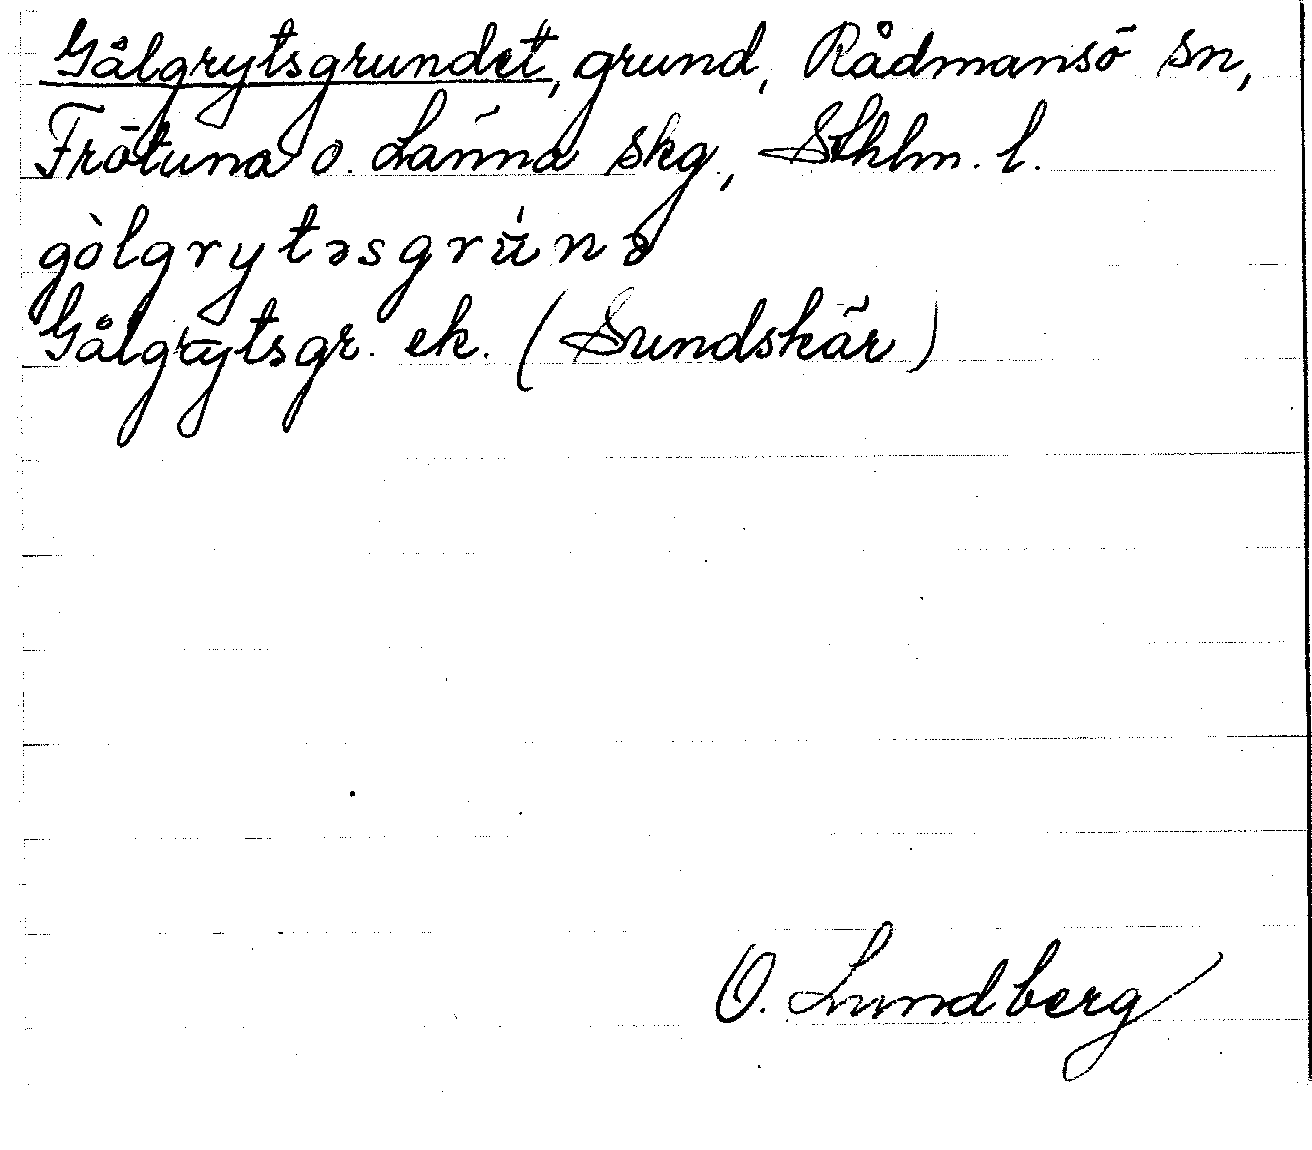 Gålgrytsgrundet, grund, Rådmansö sn,
Frötuna o. Länna skg, Sthlm. l.
gòlgrytəsgrún ə
Gålgrytsgr. ek. (Sundskär)
O. Lundberg